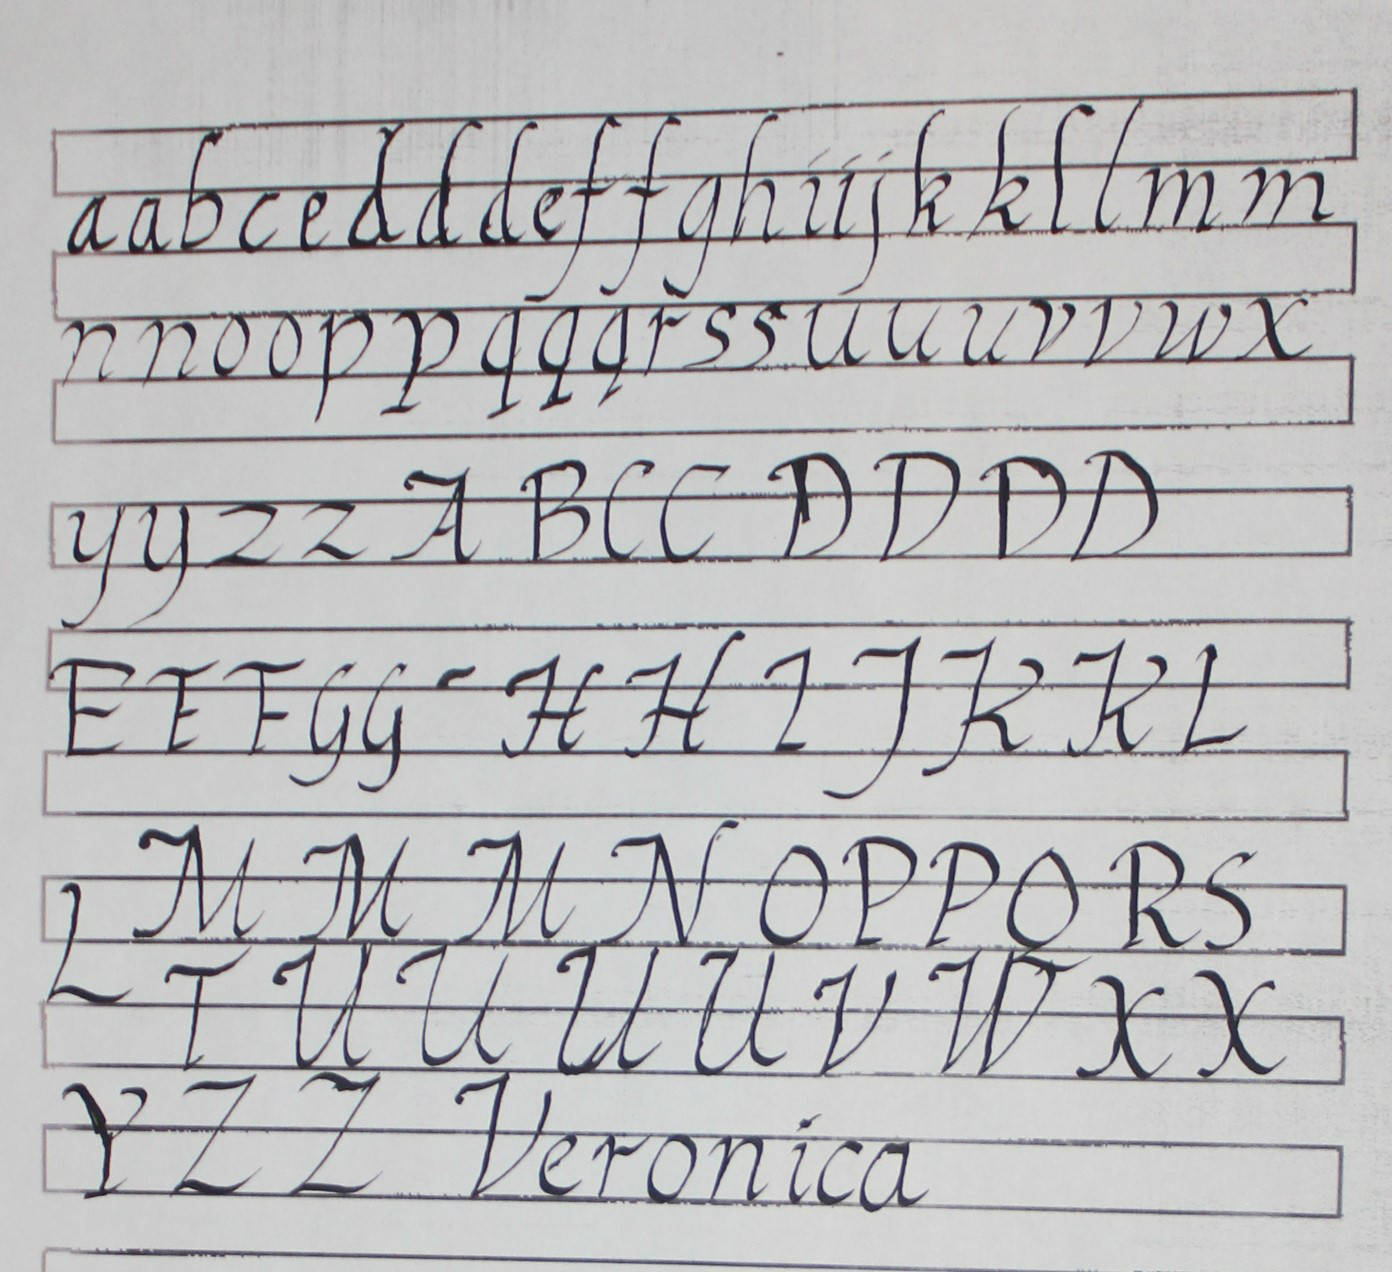 aabcedddeffghiijkkllmm
nnooppqqqrssuuuvvwx
yyzzABCCDDDD
EEFGGHHIJKKL
LMMMNOPPQRS
TUUUUVWXX
YZZ Veronica